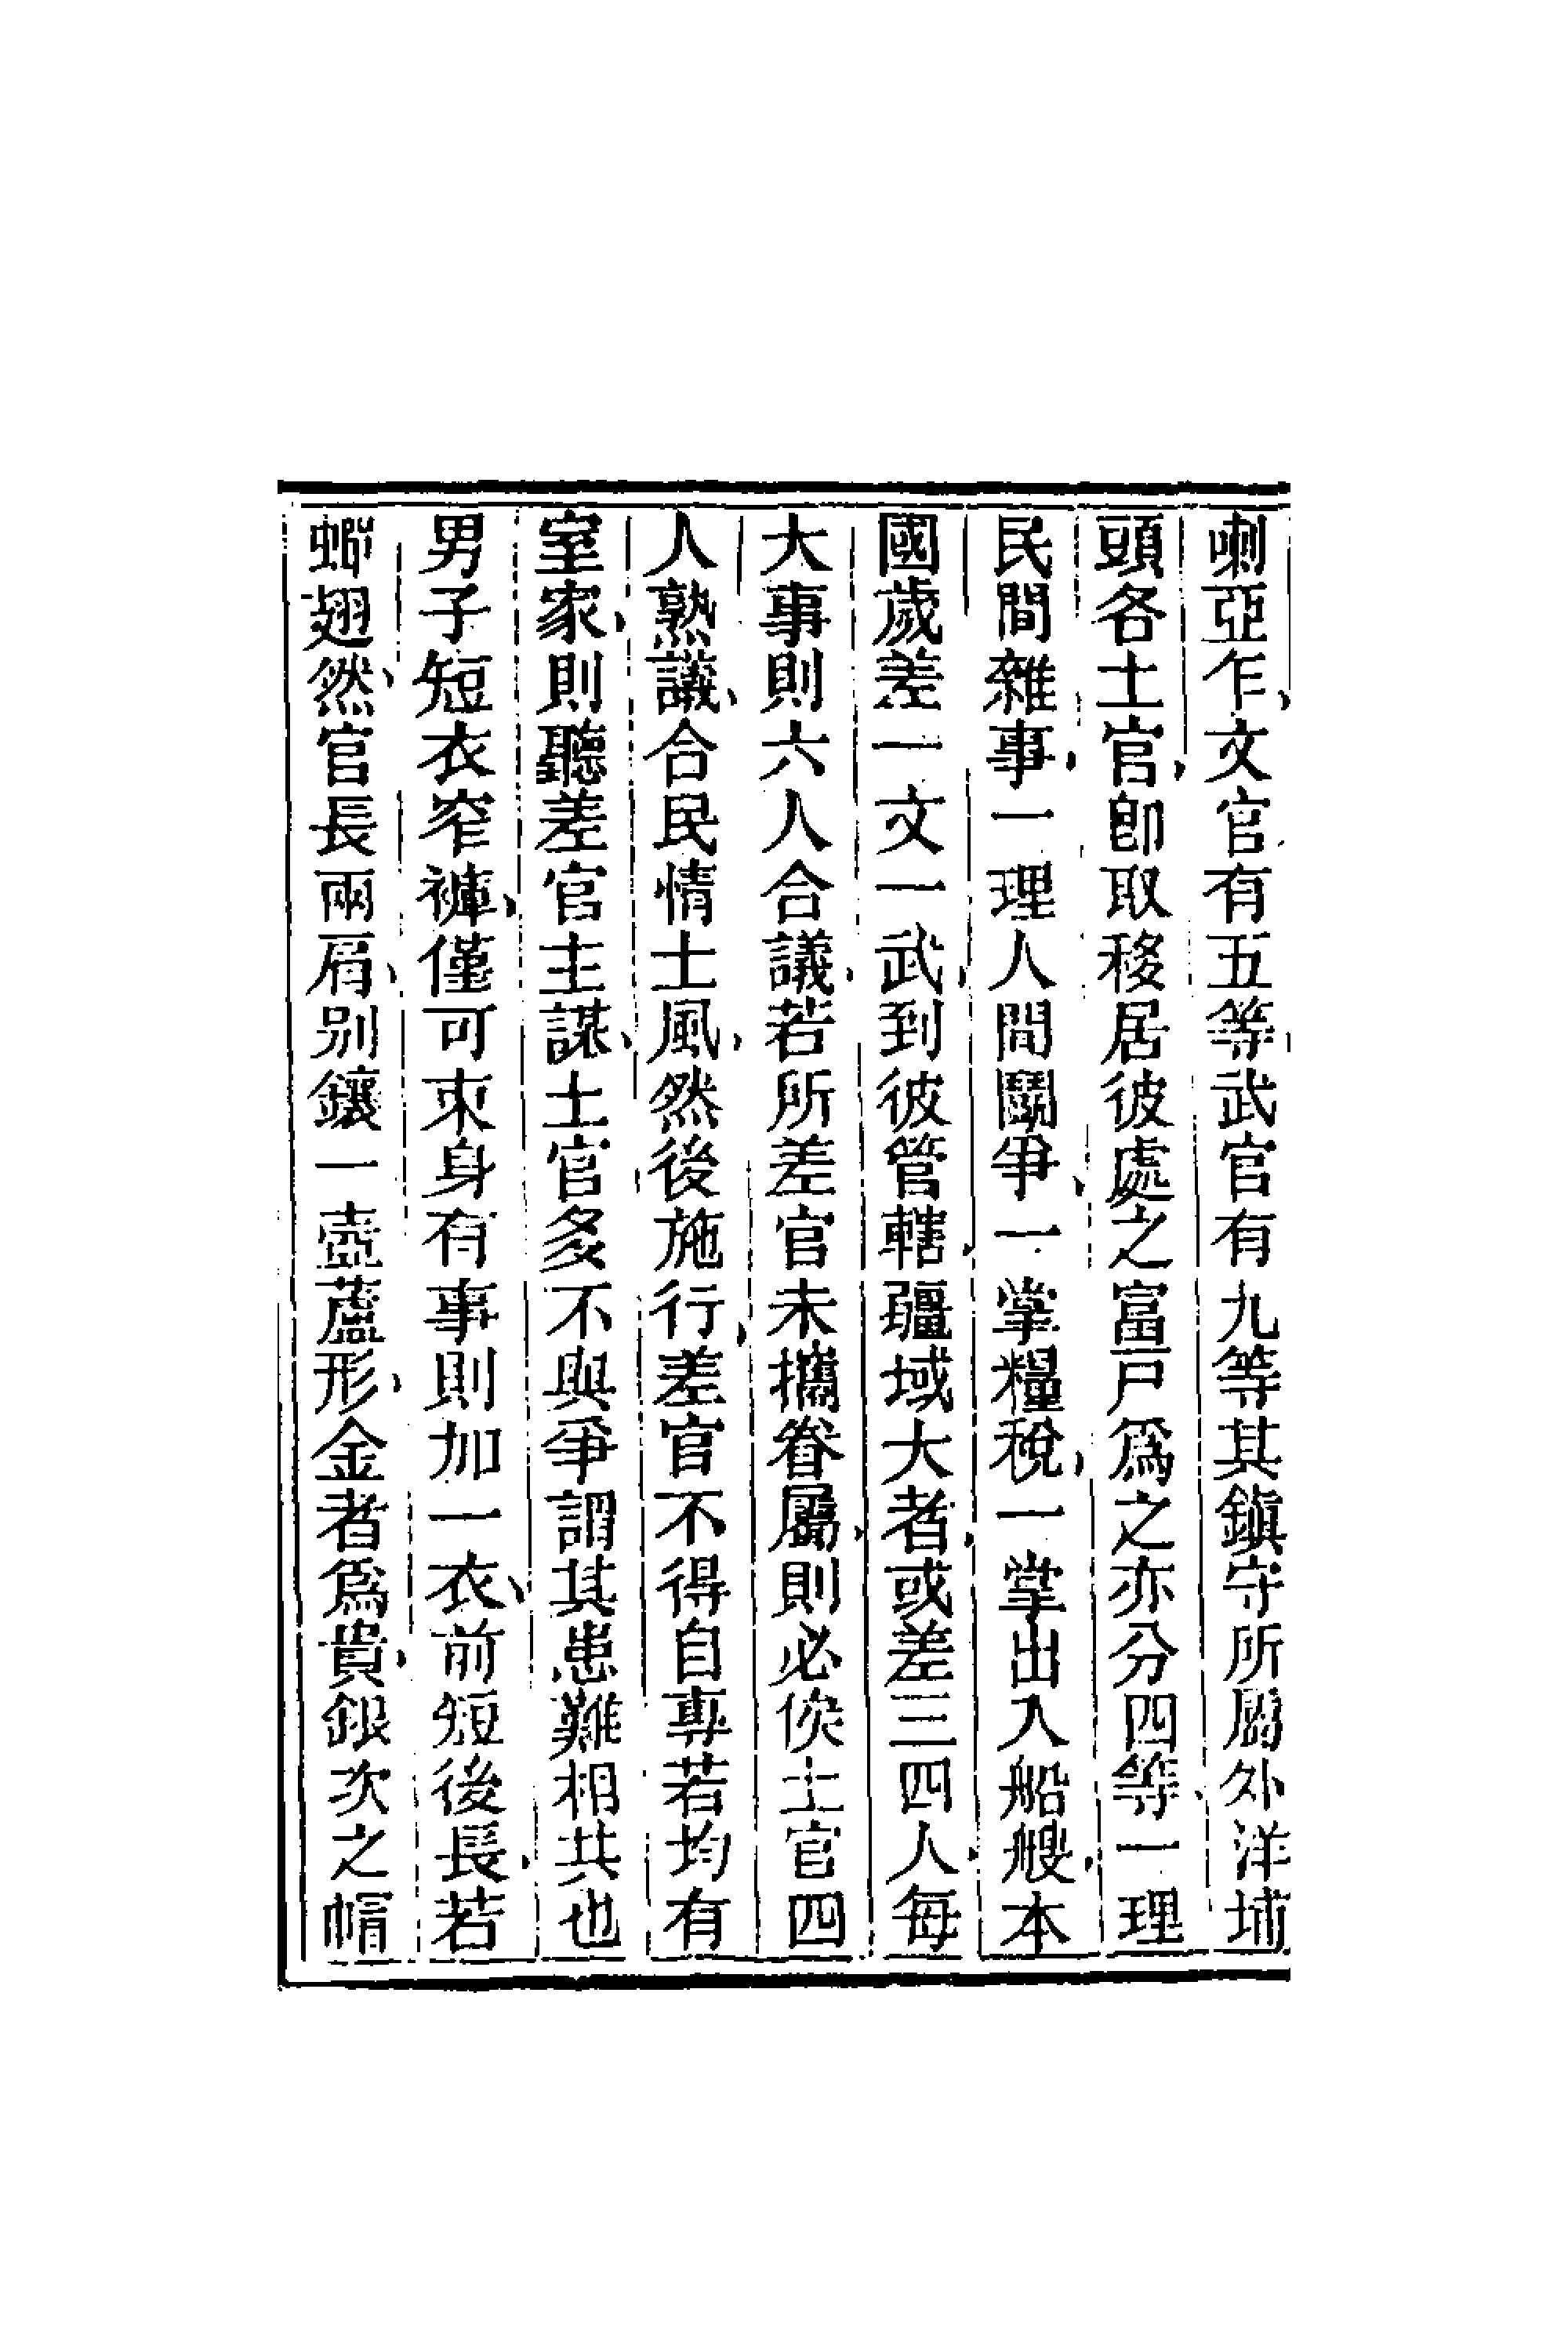 喇亞乍、文官有五等、武官有九等其鎮守所屬外洋埔
頭各土官、卽取移居彼處之富戸爲之亦分四等、一理
民間雜事、一理人間鬭爭、一掌糧稅、一掌出入船艘、本
國歲差一文一武、到彼管轄、疆域大者、或差三四人、每
大事則六人合議、若所差官未攜眷屬、則必俟土官四
人熟議、合民情士風、然後施行、差官不得自專若均有
室家、則聽差官主謀、土官多不與爭謂其患難相共也
男子短衣窄褲、僅可束身有事則加一衣、前短後長、若
蟬翅然、官長兩肩、别鑲一壺蘆形、金者爲貴、銀次之帽